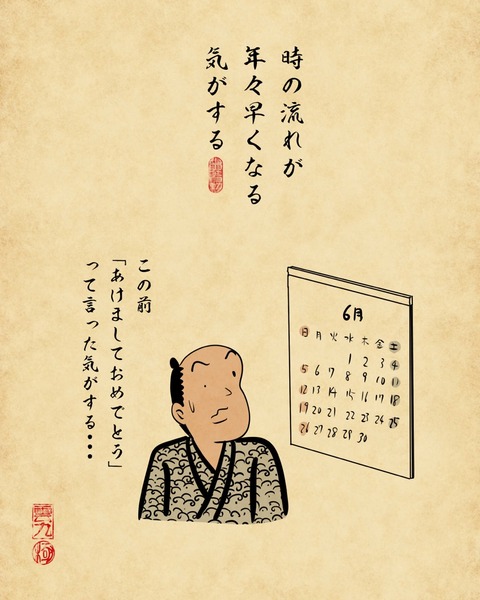 時の流れが
年々早くなる
気がする
この前
「あけましておめでとう」
って言った気がする・・・
6月
日 月 火 水 木 金 土
1 2 3 4
5 6 7 8 9 10 11
12 13 14 15 16 17 18
19 20 21 22 23 24 25
26 27 28 29 30